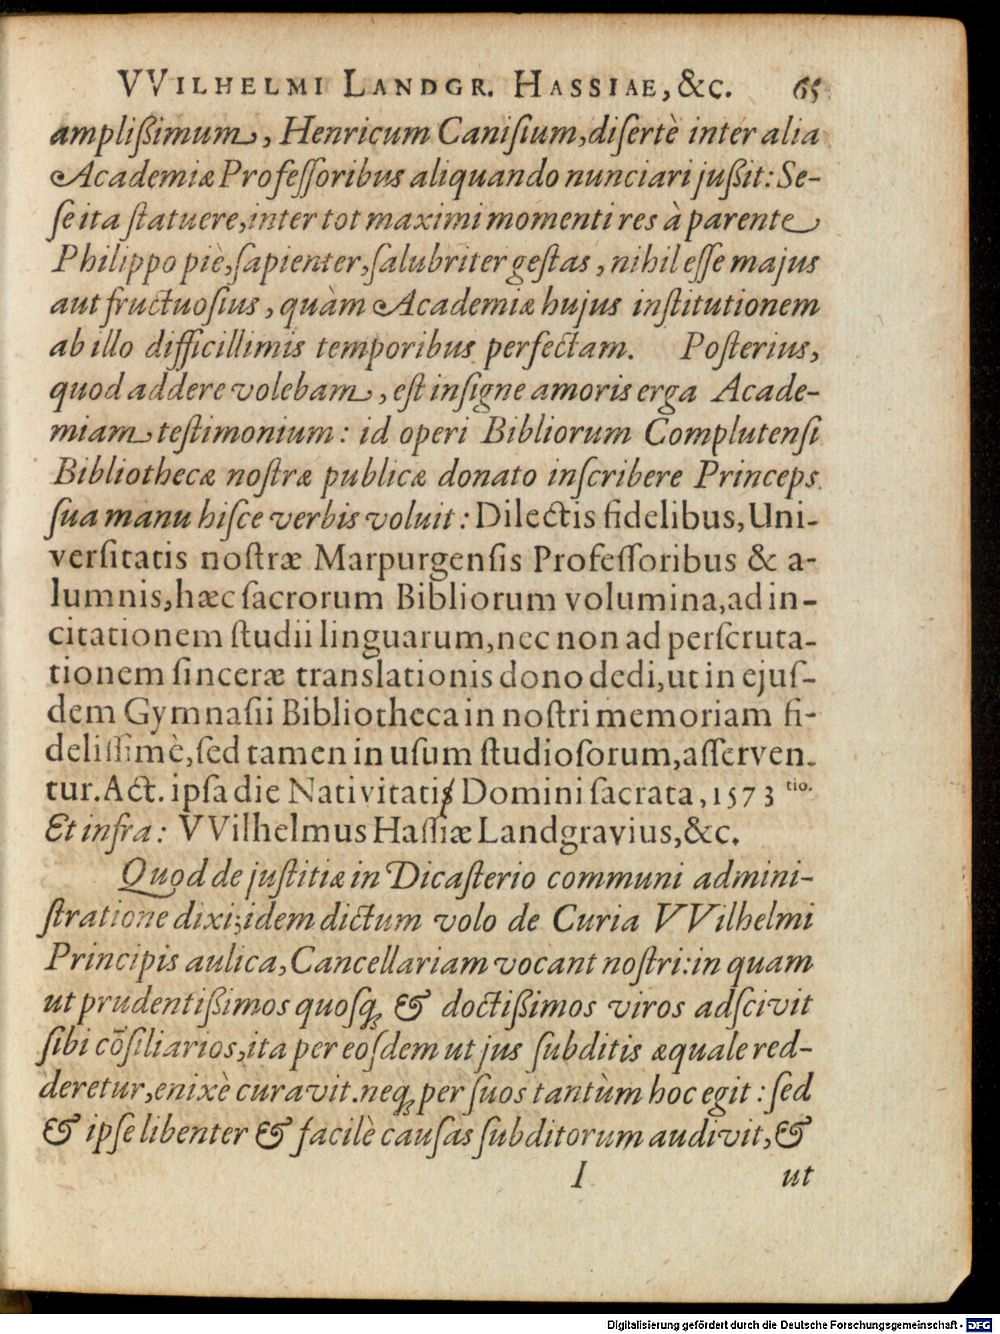 VVILHELMI LANDGR. HASSIAE, &c. 65
amplißimum, Henricum Caniſium, diſertè inter alia
Academiæ Profeſſoribus aliquando nunciari jußit: Se-
ſe ita ſtatuere, inter tot maximi momenti res à parente
Philippo piè, ſapienter, ſalubriter geſtas, nihil eſſe majus
aut fructuoſius, quàm Academiæ hujus inſtitutionem
ab illo difficillimis temporibus perfectam. Poſterius,
quod addere volebam, eſt inſigne amoris erga Acade-
miam teſtimonium: id operi Bibliorum Complutenſi
Bibliothecæ noſtræ publicæ donato inſcribere Princeps
ſua manu hiſce verbis voluit: Dilectis fidelibus, Uni-
verſitatis noſtræ Marpurgenſis Profeſſoribus & a-
lumnis, hæc ſacrorum Bibliorum volumina, ad in-
citationem ſtudii linguarum, nec non ad perſcruta-
tionem ſinceræ translationis dono dedi, ut in ejuſ-
dem Gymnaſii Bibliotheca in noſtri memoriam fi-
deliſſimè, ſed tamen in uſum ſtudioſorum, aſſerven-
tur. Act. ipſa die Nativitatis Domini ſacrata, 1573 tio.
Et infra: VVilhelmus Haſſiæ Landgravius, &c.
Quod de juſtitiæ in Dicaſterio communi admini-
ſtratione dixi; idem dictum volo de Curia VVilhelmi
Principis aulica, Cancellariam vocant noſtri: in quam
ut prudentißimos quoſq; & doctißimos viros adſcivit
ſibi cõſiliarios, ita per eoſdem ut jus ſubditis æquale red-
deretur, enixè curavit. neq; per ſuos tantùm hoc egit: ſed
& ipſe libenter & facilè cauſas ſubditorum audivit, &
I ut
Digitalisierung gefördert durch die Deutsche Forschungsgemeinschaft - DFG